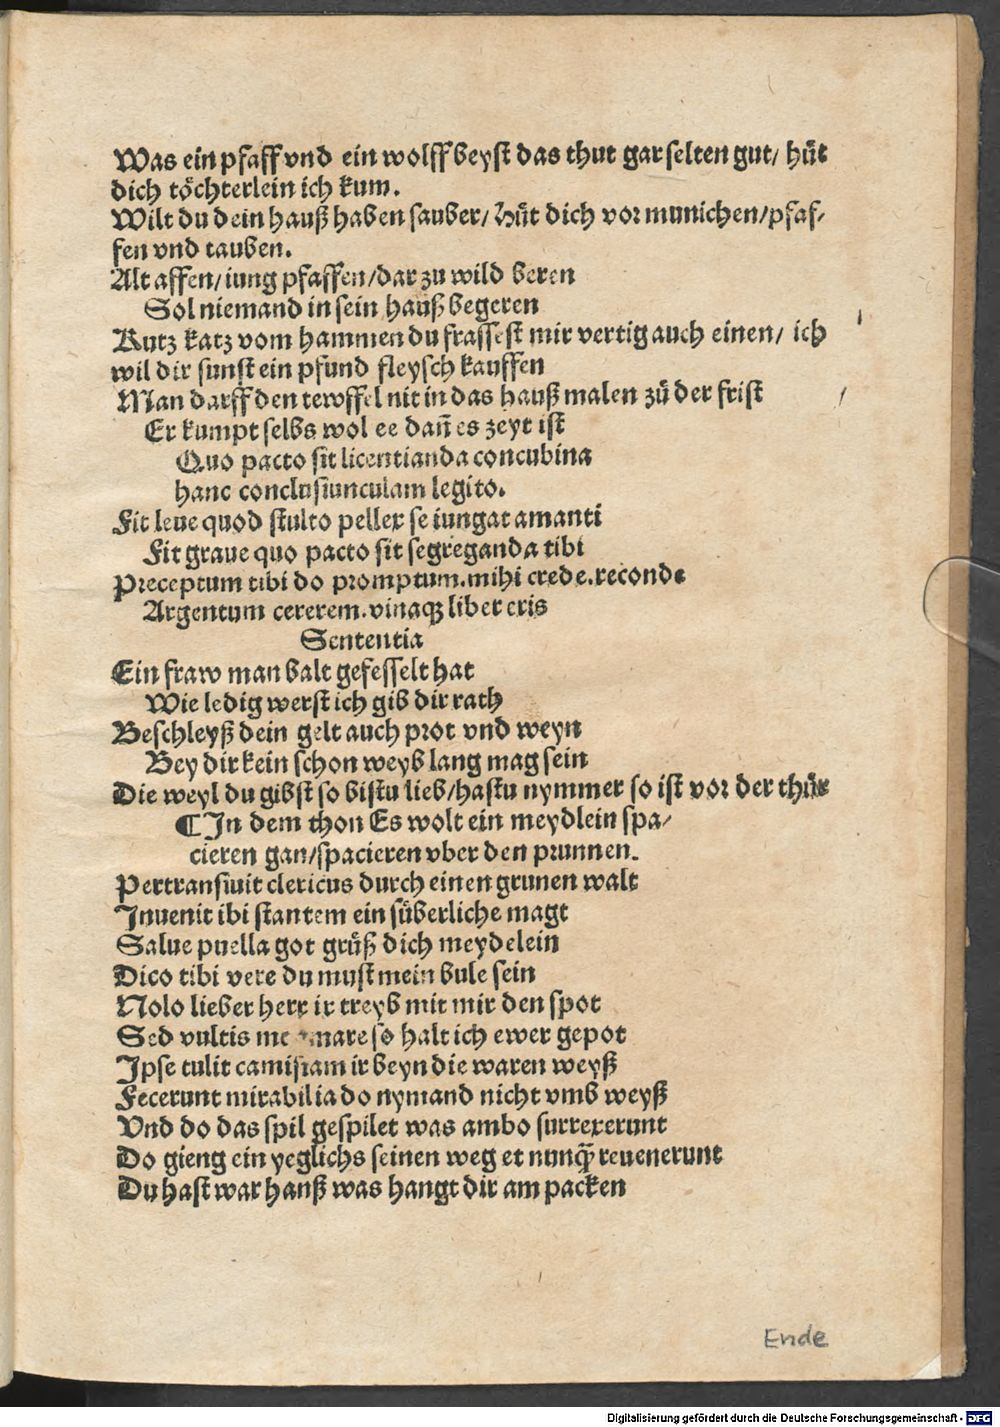 Was ein pfaff vnd ein wolff beyst das thut gar selten gut/ hüt
dich töchterlein ich kum.
Wilt du dein hauß haben sauber/ Hüt dich vor munichen/pfaf-
fen vnd tauben.
Alt affen/iung pfaffen/dar zu wild beren
Sol niemand in sein hauß begeren
Kutz katz vom hammen du frassest mir vertig auch einen/ ich
wil dir sunst ein pfund fleysch kauffen
Man darff den tewffel nit in das hauß malen zů der frist
Er kumpt selbs wol ee dañ es zeyt ist
Quo pacto sit licentianda concubina
hanc conclusiunculam legito.
Fit leue quod stulto pellex se iungat amanti
Fit graue quo pacto sit segreganda tibi
Preceptum tibi do promptum.mihi crede.reconde
Argentum cererem.vinaqʒ liber eris
Sententia
Ein fraw man balt gefesselt hat
Wie ledig werst ich gib dir rath
Beschleyß dein gelt auch prot vnd weyn
Bey dir kein schon weyb lang mag sein
Die weyl du gibst so bistu lieb/hastu nymmer so ist vor der thür
¶ In dem thon Es wolt ein meydlein spa/
cieren gan/spacieren vber den prunnen.
Pertransiuit clericus durch einen grunen walt
Inuenit ibi stantem ein süberliche magt
Salue puella got grüß dich meydelein
Dico tibi vere du must mein bule sein
Nolo lieber herr ir treyb mit mir den spot
Sed vultis me mare so halt ich ewer gepot
Ipse tulit camisiam ir beyn die waren weyß
Fecerunt mirabilia do nymand nicht vmb weyß
Vnd do das spil gespilet was ambo surrexerunt
Do gieng ein yeglichs seinen weg et nunq̃ reuenerunt
Du hast war hanß was hangt dir am packen
Ende
Digitalisierung gefördert durch die Deutsche Forschungsgemeinschaft - DFG